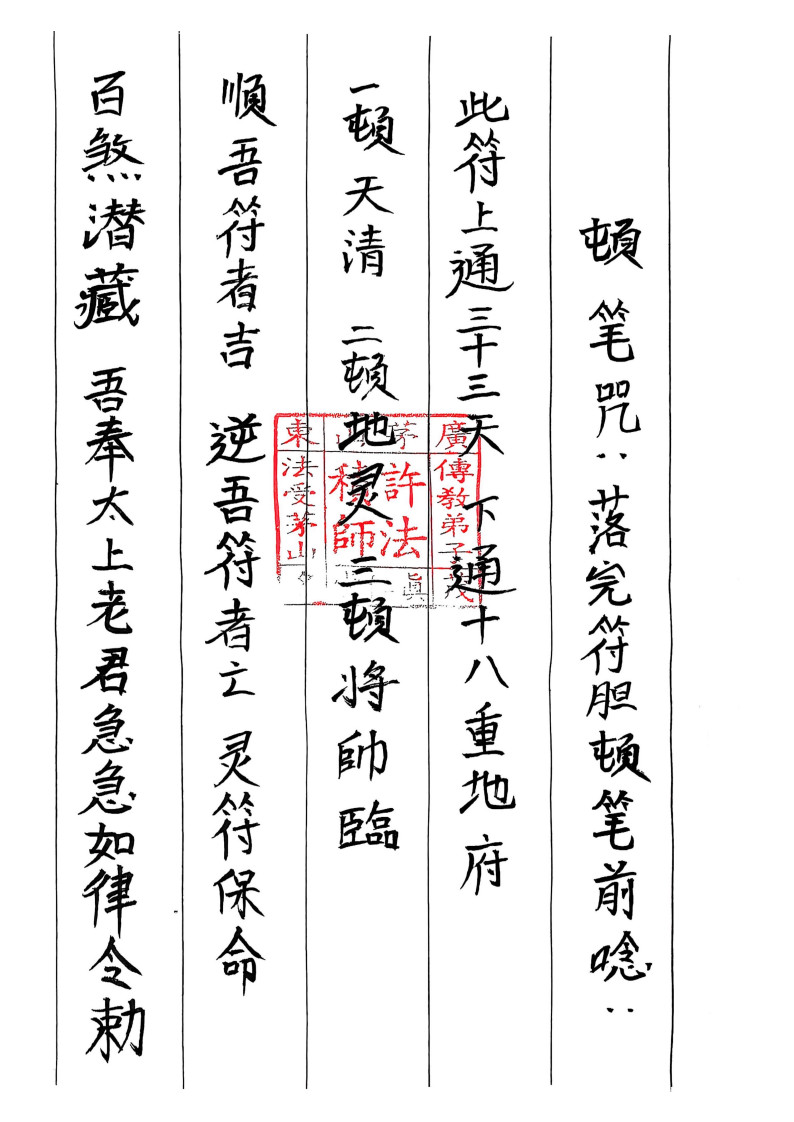 顿笔咒：落完符胆顿笔前唸：
此符上通三十三天 下通十八重地府
一顿天清 二顿地灵 三顿将帥臨
順吾符者吉 逆吾符者亡 灵符保命
百煞潜藏 吾奉太上老君急急如律令勅
廣傳教弟子茂
茅山
許法
積師
真
東法受茅山